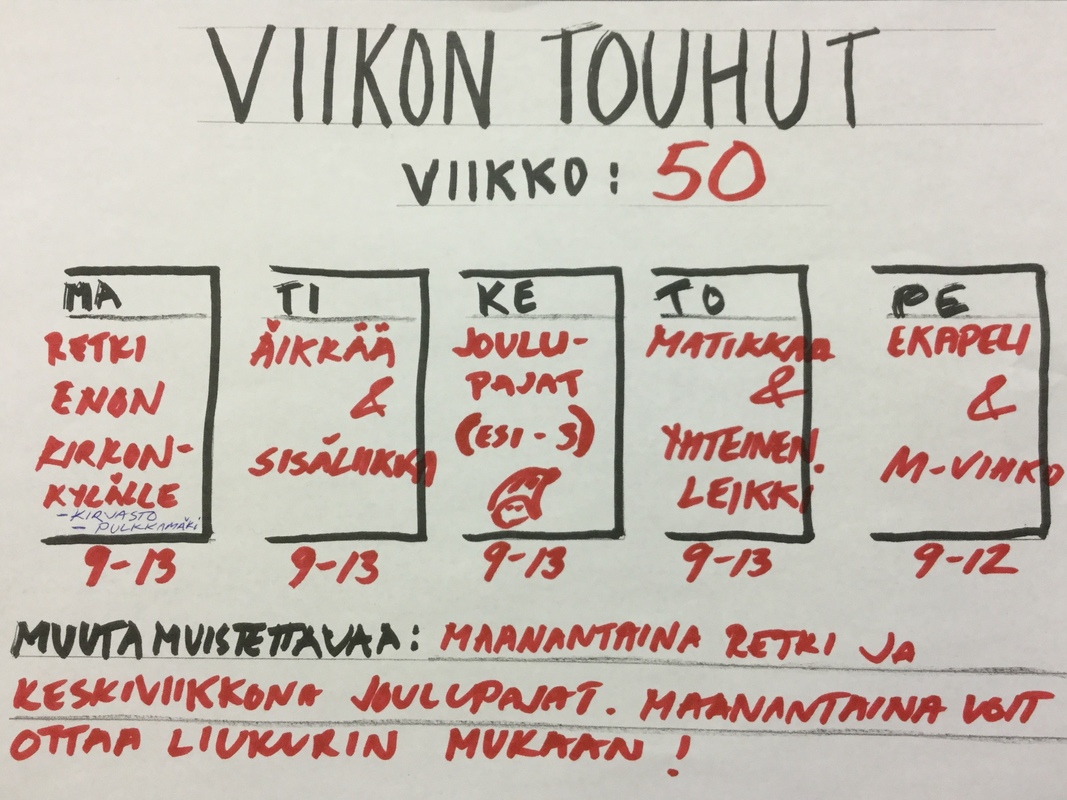 VIIKON TOUHUT
VIIKKO: 50
MA
RETKI
ENON
KIRKON-
KYLÄLLE
- KIRJASTO
- PULKKAMÄKI
9-13
TI
ÄIKKÄÄ
&
SISÄLIIKKA
9-13
KE
JOULU-
PAJAT
(ESI-3)
9-13
TO
MATIKKAA
&
YHTEINEN
LEIKKI
9-13
PE
EKAPELI
&
M-VIHKO
9-12
MUUTA MUISTETTAVAA: MAANANTAINA RETKI JA
KESKIVIIKKONA JOULUPAJAT. MAANANTAINA VOIT
OTTAA LIUKURIN MUKAAN!